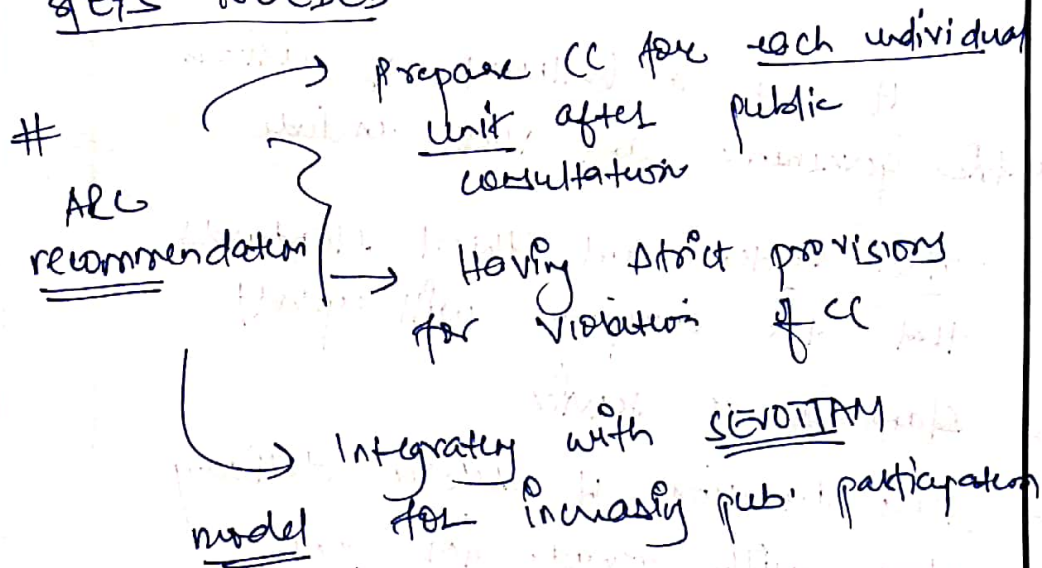 NEEDED
Prepare CC for each individual
unit after public
consultation
#
ARC
recommendation
→ Having strict provisions
for violation of CC
→ Integrating with SEVOTTAM
model for increasing pub. participation